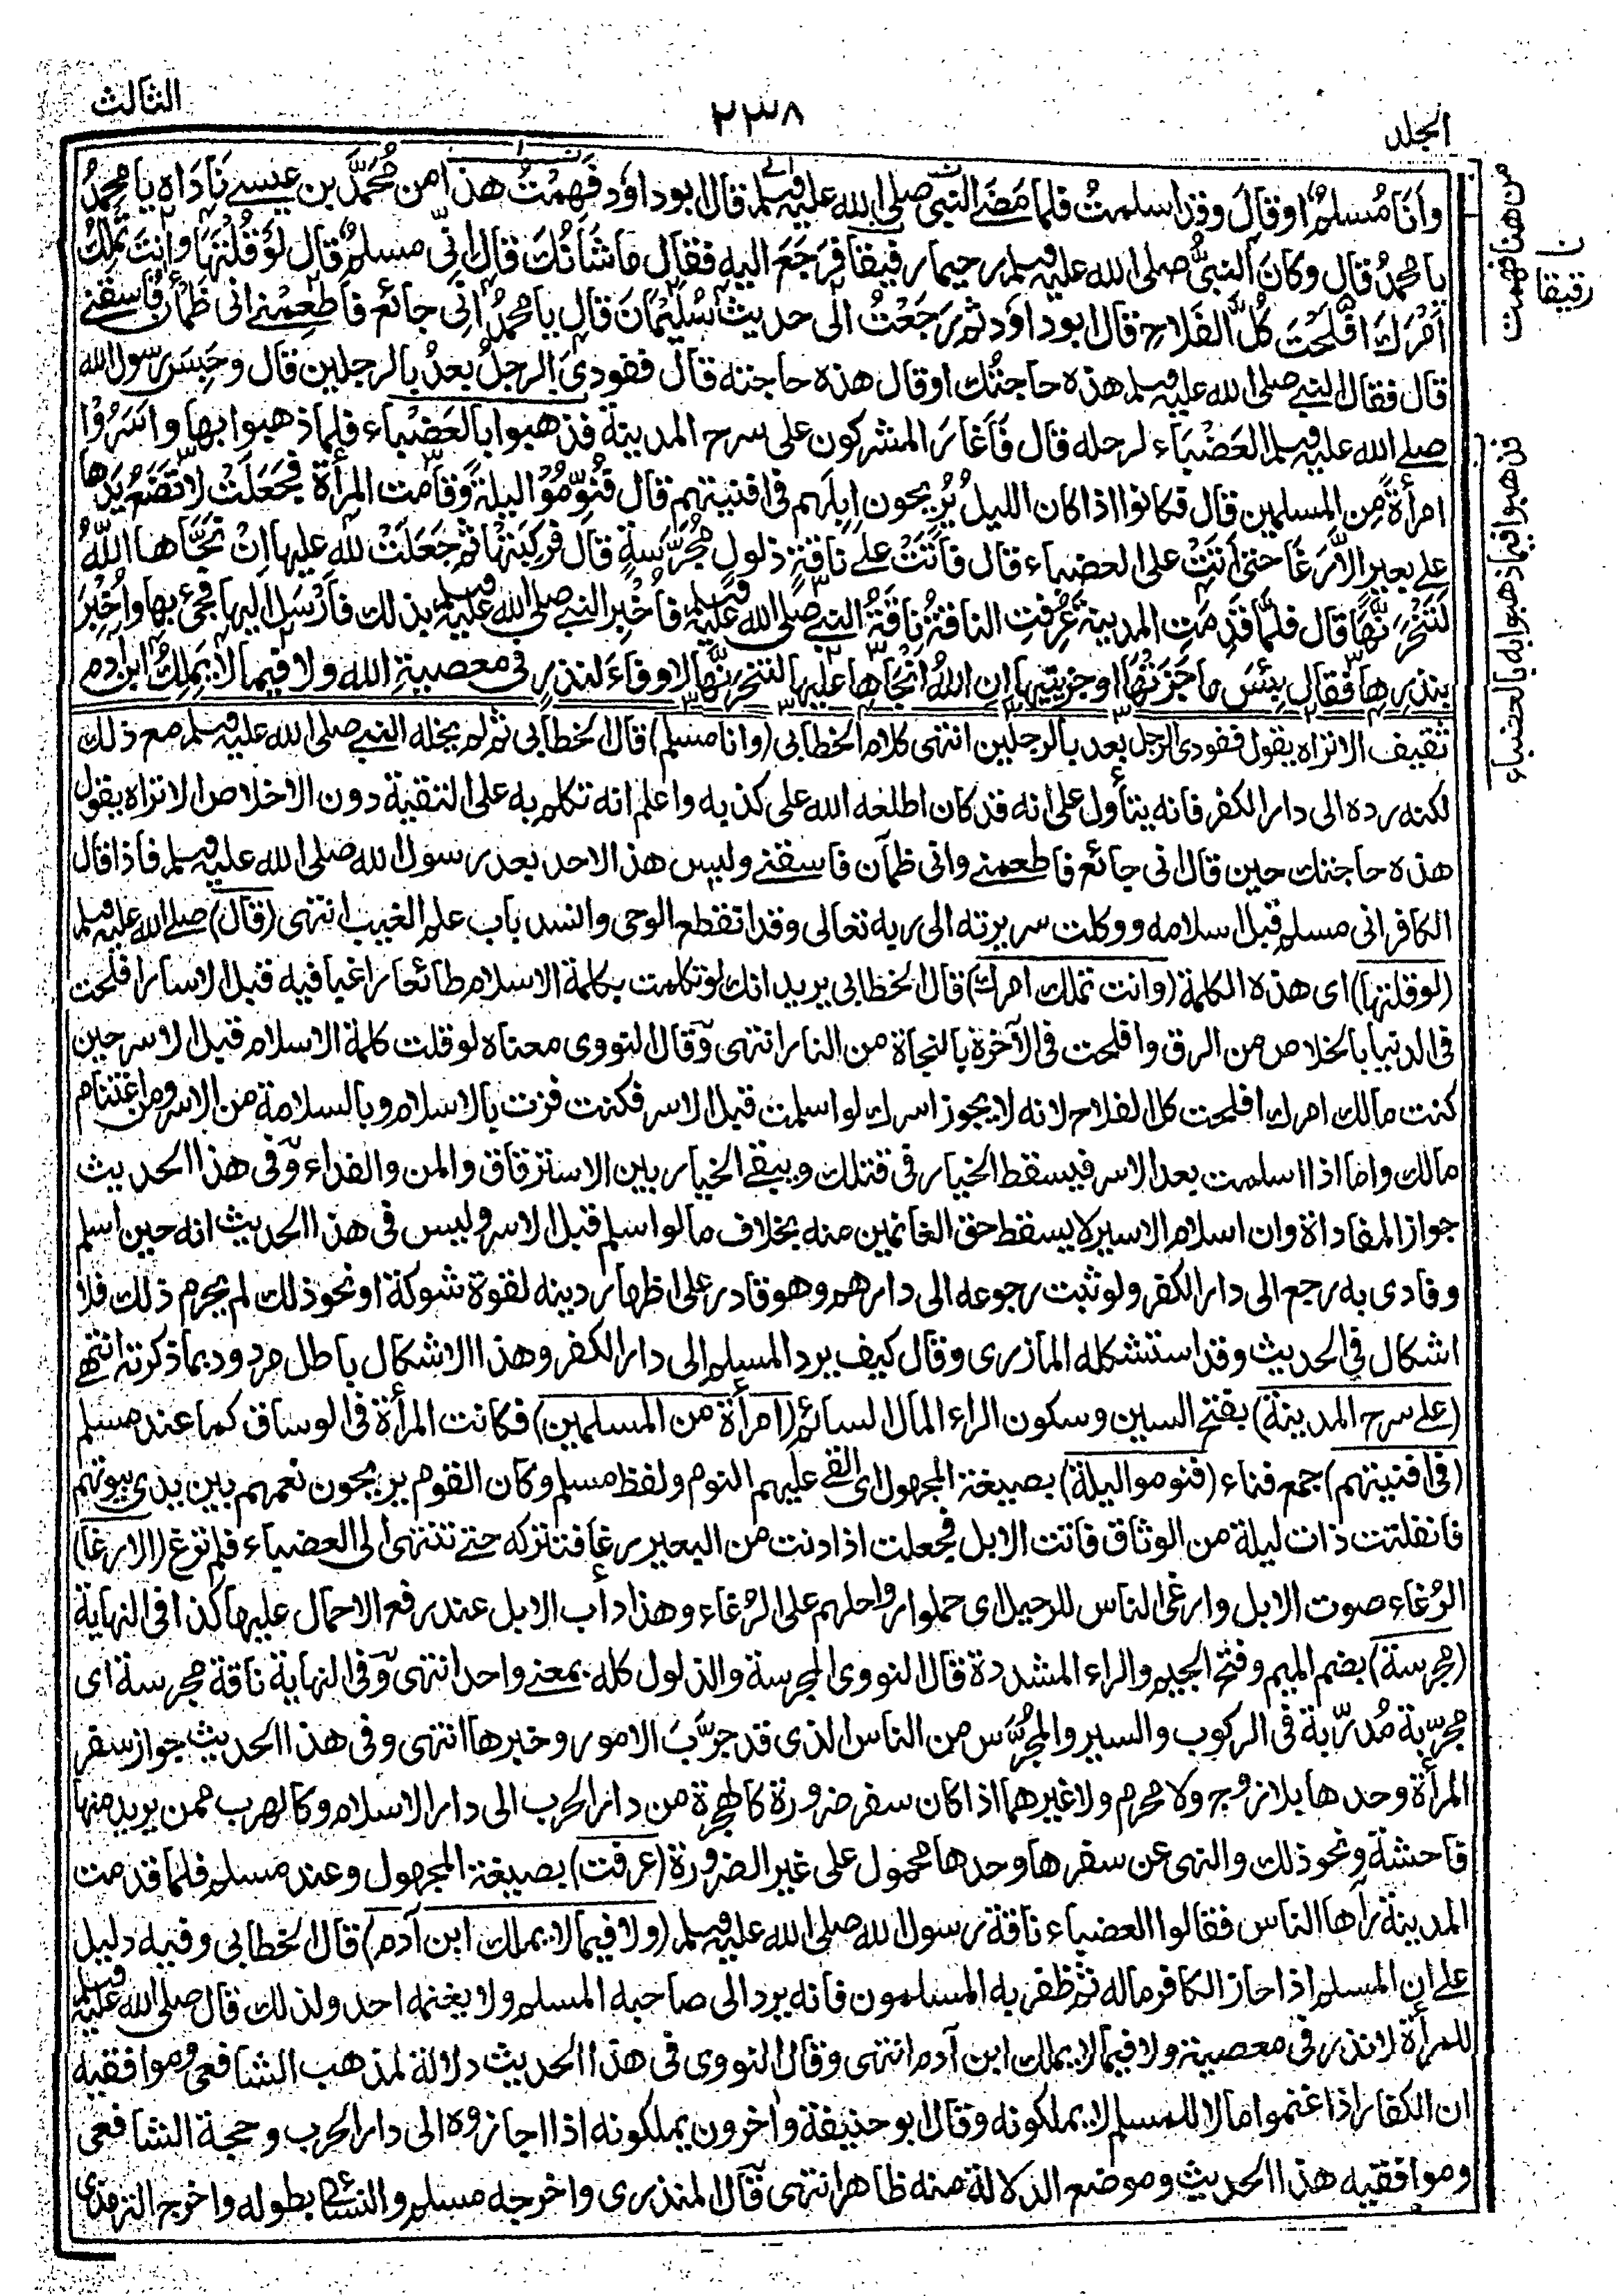 المجلد
٢٣٨
الثالث
وَأنَا مُسلمٌ اوقالَ وقد اسلمتُ فلما مَضَى النبى صلى الله عليه وسلم قال ابوداود فَهِمْتُ هذا من مُحَمَّدِ بن عيسى نَادَاه يا محمدُ
يا محمدُ قال وكانَ النبىُّ صلى الله عليه وسلم رحيما رفيقا فرَجَعَ اليه فقال ما شَانُكَ قال انِّى مسلمٌ قال لوقُلْتَهَا وانتَ تَملكُ
اَمْرَكَ افْلَحْتَ كُلَّ الفَلَاحِ قال ابوداود ثم رَجَعْتُ الى حديث سُلَيْمَانَ قال يا محمدُ انِّى جائع فاَطعِمْنى انى ظمْاٰنُ فاسقنى
قال فقال النبى صلى الله عليه وسلم هذه حاجتُك اوقال هذه حاجته قال ففودىَ الرجلُ بعدُ بالرجلين قال وحَبَسَ رسول الله
صلى الله عليه وسلم العَضْبَاءَ لرحله قال فَاَغَارَ المشركون على سرح المدينة فذهبوا بالعَضْبَاء فلما ذهبوا بها واَسَرُوْا
امرأةً مِن المسلمين قال فكانوا اذا كان الليلُ يُرِيحون اِبِلَهم فى افنيتهم قال فنُوِّمُوْا ليلة وقامت المرأة فجَعَلَتْ لا تَضَعُ يَدَها
على بعير الا رَغَا حتى اَتَتْ على العضباء قال فاَتَتْ على ناقةٍ ذلولٍ مُجَرَّسَةٍ قال فركِبَتْهَا ثم جَعَلَتْ لله عليها اِنْ نَجَّاها اللهُ
لَتَنْحَرَنَّهَا قال فلمَّا قَدِمَتِ المدينةَ عُرِفتِ الناقةُ ناقةُ النبى صلى الله عليه وسلم فاُخْبِرَ النبى صلى الله عليه وسلم بذلك فاَرْسَلَ اليها فجىء بها واُخْبِرَ
بنذرها فقال بِئْسَ ما جَزَتْهَا او جزيتيها انِ اللهُ انْجَاها عليها لتنْحَرَنَّهَا لا وفاءَ لنذرٍ فى معصيةِ الله ولا فيما لا يَملِكُ ابن ادم
ثقيف الاتراه يقول ففودى الرجل بعد بالرجلين انتهى كلام الخطابى (وانا مسلم) قال الخطابى ثم لم يخله النبى صلى الله عليه وسلم مع ذلك
لكنه رده الى دار الكفر فانه يتأول على انه قد كان اطلعه الله على كذبه واعلم انه تكلم به على التقية دون الاخلاص الاتراه يقول
هذه حاجتك حين قال انى جائع فاطعمنى وانى ظمآن فاسقنى وليس هذا لاحد بعد رسول الله صلى الله عليه وسلم فاذا قال
الكافر انى مسلم قبل اسلامه ووكلت سريرته الى ربه تعالى وقد انقطع الوحى وانسد باب علم الغيب انتهى (قال) صلى الله عليه وسلم
(لوقلتها) اى هذه الكلمة (وانت تملك امرك) قال الخطابى يريد انك لو تكلمت بكلمة الاسلام طائعا راغبا فيه قبل الاسار افلحت
فى الدنيا بالخلاص من الرق وافلحت فى الآخرة بالنجاة من النار انتهى وقال النووى معناه لوقلت كلمة الاسلام قبل الاسر حين
كنت مالك امرك افلحت كل الفلاح لانه لا يجوز اسرك لو اسلمت قبل الاسر فكنت فزت بالاسلام وبالسلامة من الاسر ومن اغتنام
مالك واما اذا اسلمت بعد الاسر فيسقط الخيار فى قتلك ويبقى الخيار بين الاسترقاق والمن والفداء وفى هذا الحديث
جواز المفاداة وان اسلام الاسير لا يسقط حق الغانمين منه بخلاف ما لو اسلم قبل الاسر وليس فى هذا الحديث انه حين اسلم
وفادى به رجع الى دار الكفر ولو ثبت رجوعه الى دارهم وهو قادر على اظهار دينه لقوة شوكة او نحو ذلك لم يحرم ذلك فلا
اشكال فى الحديث وقد استشكله المازرى وقال كيف يرد المسلم الى دار الكفر وهذا الاشكال باطل مردود بما ذكرته انتهى
(على سرح المدينة) بفتح السين وسكون الراء المال السائم (امرأة من المسلمين) فكانت المرأة فى الوساق كما عند مسلم
(فى افنيتهم) جمع فناء (فنوموا ليلة) بصيغة المجهول اى القى عليهم النوم ولفظ مسلم وكان القوم يريحون نعمهم بين يدى بيوتهم
فانفلتت ذات ليلة من الوثاق فاتت الابل فجعلت اذا دنت من البعير رغا فتتركه حتى تنتهى الى العضباء فلم ترغ (الا رغا)
الرُغاء صوت الابل وارغى الناس للرحيل اى حملوا رواحلهم على الرُغاء وهذا دأب الابل عند رفع الاحمال عليها كذا فى النهاية
(مجرسة) بضم الميم وفتح الجيم والراء المشددة قال النووى المجرسة والذلول كله بمعنى واحد انتهى وفى النهاية ناقة مجرسة اى
مجرّبة مُدرّبة فى الركوب والسير والمجرَّس من الناس الذى قد جرَّبَ الامور وخبرها انتهى وفى هذا الحديث جواز سفر
المرأة وحدها بلا زوج ولا محرم ولا غيرهما اذا كان سفر ضرورة كالهجرة من دار الحرب الى دار الاسلام وكالهرب ممن يريد منها
فاحشة ونحو ذلك والنهى عن سفرها وحدها محمول على غير الضرورة (عرفت) بصيغة المجهول وعند مسلم فلما قدمت
المدينة رآها الناس فقالوا العضباء ناقة رسول الله صلى الله عليه وسلم (ولا فيما لا يملك ابن آدم) قال الخطابى وفيه دليل
على ان المسلم اذا حاز الكافر ماله ثم ظفر به المسلمون فانه يرد الى صاحبه المسلم ولا يغنمه احد ولذلك قال صلى الله عليه وسلم
للمرأة لا نذر فى معصية ولا فيما لا يملك ابن آدم انتهى وقال النووى فى هذا الحديث دلالة لمذهب الشافعى وموافقيه
ان الكفار اذا غنموا مالا للمسلم لا يملكونه وقال ابو حنيفة وآخرون يملكونه اذا اجازوه الى دار الحرب وحجة الشافعى
وموافقيه هذا الحديث وموضع الدلالة منه ظاهر انتهى قال المنذرى واخرجه مسلم والنسائى بطوله واخرج الترمذى
من هنا فهمت
ن
رقيقا
فذهبوا به بالعضباء